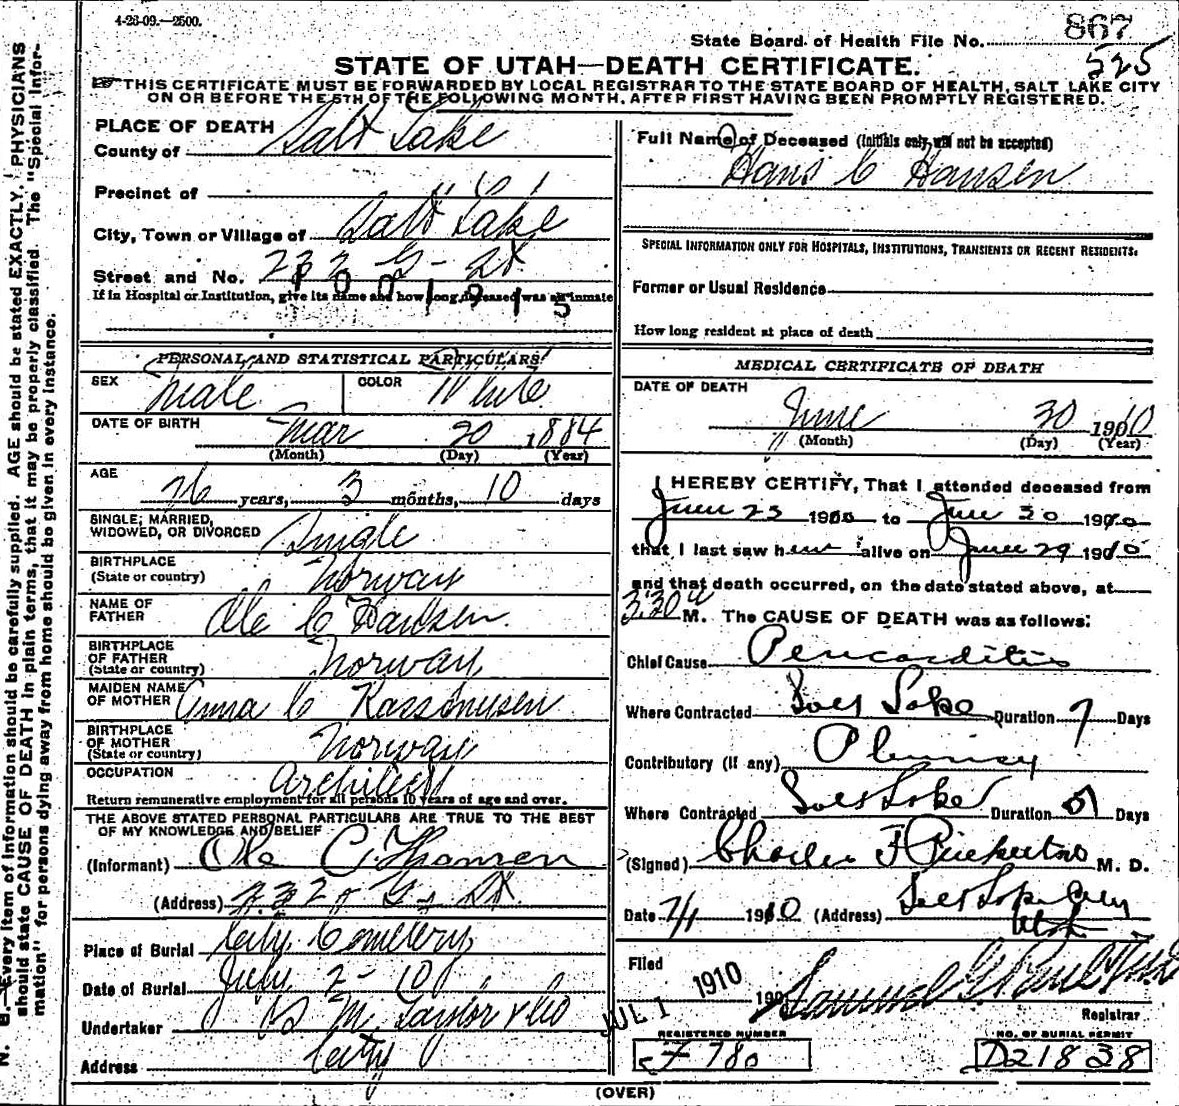 4-28-09.—2500.
State Board of Health File No. 867
525
STATE OF UTAH—DEATH CERTIFICATE.
THIS CERTIFICATE MUST BE FORWARDED BY LOCAL REGISTRAR TO THE STATE BOARD OF HEALTH, SALT LAKE CITY
ON OR BEFORE THE 5TH OF THE FOLLOWING MONTH, AFTER FIRST HAVING BEEN PROMPTLY REGISTERED.
PLACE OF DEATH
County of Salt Lake
Precinct of
City, Town or Village of Salt Lake
Street and No. 232 G- St
If in Hospital or Institution, give its name and how long deceased was an inmate
1001915
PERSONAL AND STATISTICAL PARTICULARS
SEX Male COLOR White
DATE OF BIRTH Mar 20 1884
(Month) (Day) (Year)
AGE 26 years, 3 months, 10 days
SINGLE, MARRIED,
WIDOWED, OR DIVORCED Single
BIRTHPLACE
(State or country) Norway
NAME OF
FATHER Ole C Hansen.
BIRTHPLACE
OF FATHER
(State or country) Norway
MAIDEN NAME
OF MOTHER Anna C
BIRTHPLACE
OF MOTHER
(State or country) Norway
OCCUPATION Architect
Return remunerative employment for all persons 10 years of age and over.
THE ABOVE STATED PERSONAL PARTICULARS ARE TRUE TO THE BEST
OF MY KNOWLEDGE AND BELIEF
(Informant) Ole C
(Address) 232 G- St.
Place of Burial City Cemetery
Date of Burial July 2- 10
Undertaker S M Taylor & Co
Address City
Full Name of Deceased (initials only will not be accepted)
Hans C Hansen
SPECIAL INFORMATION ONLY FOR HOSPITALS, INSTITUTIONS, TRANSIENTS OR RECENT RESIDENTS.
Former or Usual Residence
How long resident at place of death
MEDICAL CERTIFICATE OF DEATH
DATE OF DEATH
June 30 1910
(Month) (Day) (Year)
I HEREBY CERTIFY, That I attended deceased from
June 23 1910 to June 30 1910
that I last saw him alive on June 29 1910
and that death occurred, on the date stated above, at
3:30 a M. The CAUSE OF DEATH was as follows:
Chief Cause Pericarditis
Where Contracted Salt Lake Duration 7 Days
Contributory (if any) Pleurisy
Where Contracted Salt Lake Duration Days
(Signed) Charles F Pinkerton M. D.
Date 7/1 1910 (Address) Salt Lake City
Utah
Filed JUL 1 1910 190 Samuel G. Paul
Registrar
REGISTERED NUMBER
F 780
NO. OF BURIAL PERMIT
D21838
(OVER)
N. B.—Every item of information should be carefully supplied. AGE should be stated EXACTLY. PHYSICIANS
should state CAUSE OF DEATH in plain terms, that it may be properly classified. The "Special Infor-
mation" for persons dying away from home should be given in every instance.